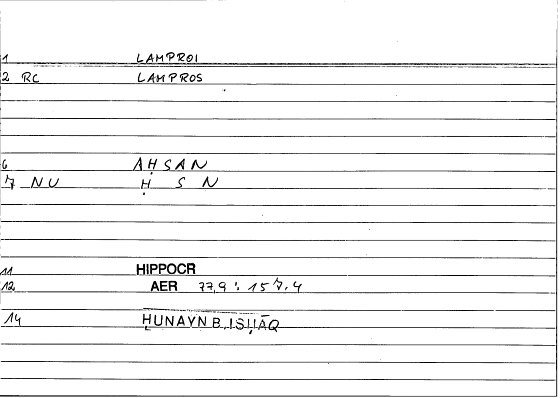 1 LAMPROI
2 RC LAMPROS
6 AḤSAN
7 NU Ḥ S N
11 HIPPOCR
12 AER 77,9 : 157,4
14 ḤUNAYN B. ISḤĀQ